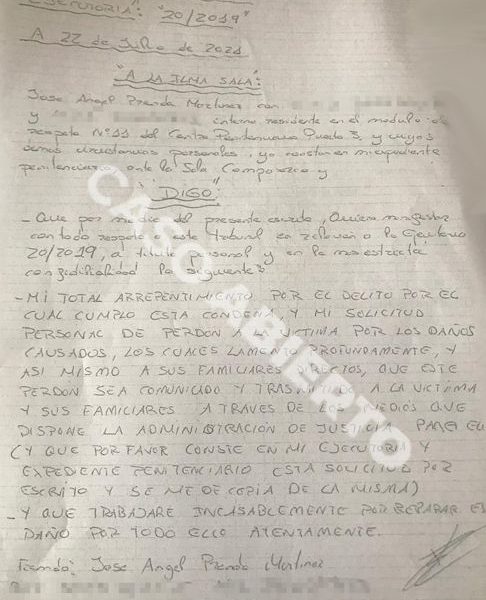 EJECUTORIA: "20/2019"
A 22 de Julio de 2021
"A LA ILMA SALA":
Jose Angel Prenda Martinez con
y interno residente en el modulo de
respeto Nº11 del Centro Penitenciario Puerto 3, y cuyos
demas circunstancias personales, ya constan en mi expediente
penitenciario ante la Sala Comparezco y
"DIGO"
- Que por medio del presente escrito, Quiero manifestar
con todo respeto a este Tribunal en relacion a la Ejecutoria
20/2019, a titulo personal y en la mas estricta
confidencialidad lo siguiente:
- MI TOTAL ARREPENTIMIENTO POR EL DELITO POR EL
CUAL CUMPLO ESTA CONDENA, Y MI SOLICITUD
PERSONAL DE PERDON A LA VICTIMA POR LOS DAÑOS
CAUSADOS, LOS CUALES LAMENTO PROFUNDAMENTE, Y
ASI MISMO A SUS FAMILIARES DIRECTOS, QUE ESTE
PERDON SEA COMUNICADO Y TRASMITIDO A LA VICTIMA
Y SUS FAMILIARES A TRAVES DE LOS MEDIOS QUE
DISPONE LA ADMINISTRACION DE JUSTICIA PARA ELLO
(Y QUE POR FAVOR CONSTE EN MI EJECUTORIA Y
EXPEDIENTE PENITENCIARIO ESTA SOLICITUD POR
ESCRITO Y SE ME DE COPIA DE LA MISMA)
- Y QUE TRABAJARE INCASABLEMENTE POR REPARAR EL
DAÑO POR TODO ELLO ATENTAMENTE.
Firmado: Jose Angel Prenda Martinez
CASO ABIERTO